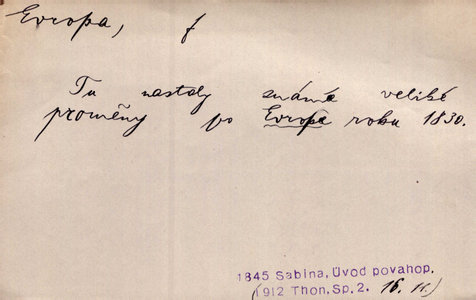 Evropa, f
Tu nastaly známé veliké
proměny po Evropě roku 1830.
1845 Sabina, Úvod povahop.
(1912 Thon, Sp. 2. 16.